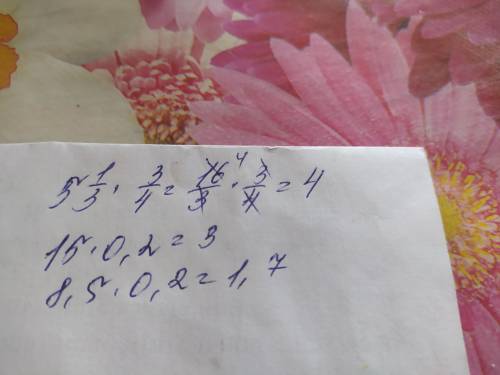 5 1/3 · 3/4 = 16/3 · 3/4 = 4
15 · 0,2 = 3
8,5 · 0,2 = 1,7